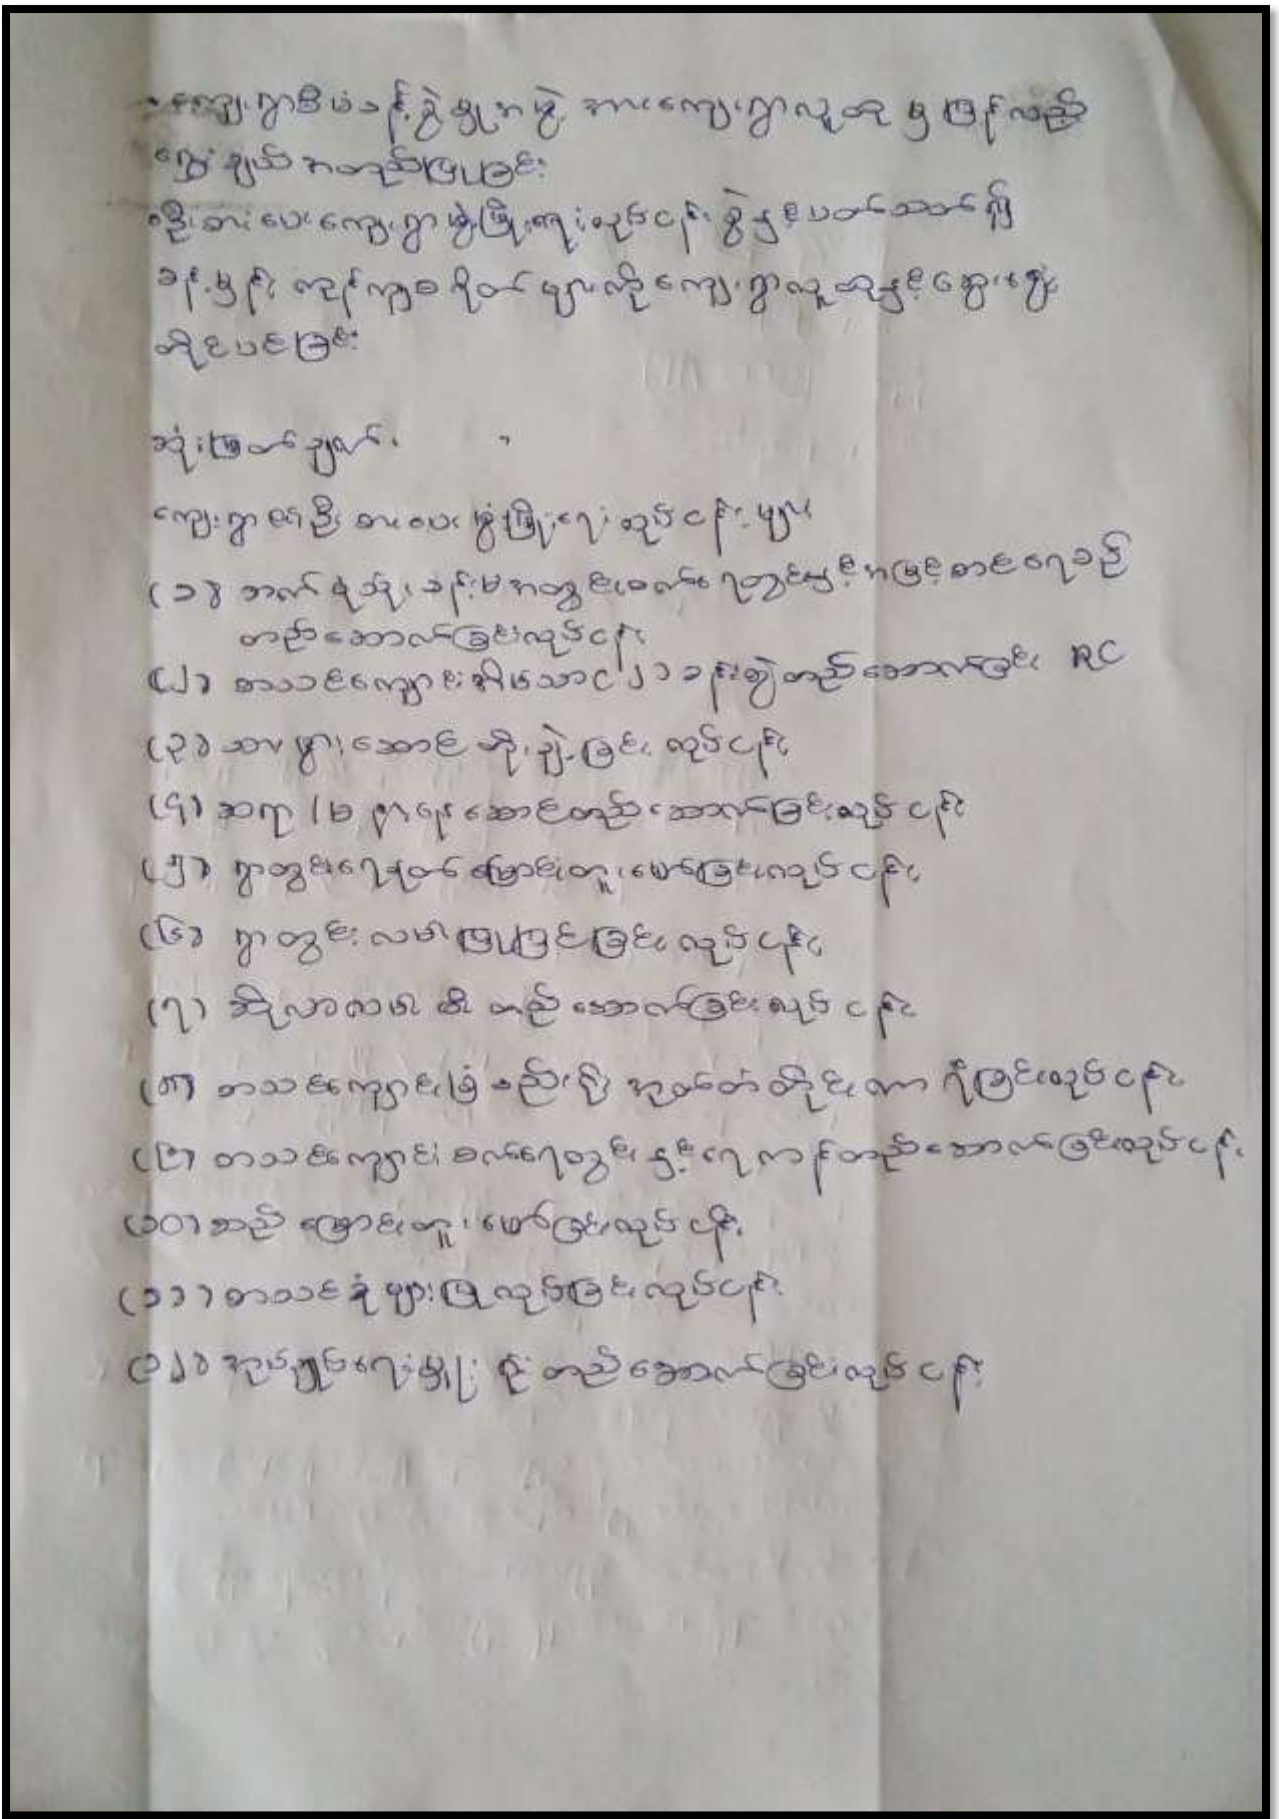 • ကျေးရွာစီမံခန့်ခွဲမှုအဖွဲ့ အားကျေးရွာလူထု မှ ပြန်လည်
ရွေးချယ် အတည်ပြုခြင်း
• ဦးစားပေးကျေးရွာဖွံ့ဖြိုးရေးလုပ်ငန်းခွဲနှင့်ပတ်သတ်၍
ခန့်မှန်း ကုန်ကျစရိတ် များကိုကျေးရွာလူထုနှင့်ဆွေးနွေး
တိုင်ပင်ခြင်း
ဆုံးဖြတ်ချက်။
ကျေးရွာ၏ဦးစားပေးဖွံ့ဖြိုးရေးလုပ်ငန်းများ
(၁) ဘက်စုံသုံးခန်းမအတွင်းစက်ရေတွင်းနှင့်အမြင့်စင်ရေစည်
တည်ဆောက်ခြင်းလုပ်ငန်း
(၂) စာသင်ကျောင်းအိမ်သာ ၂ ခန်းတွဲတည်ဆောက်ခြင်း RC
(၃) သားဖွားဆောင် တိုးချဲ့ခြင်း လုပ်ငန်း
(၄) ဆရာ / မ နားနေဆောင်တည်ဆောက်ခြင်းလုပ်ငန်း
(၅) ရွာတွင်းရေနုတ်မြောင်းတူးဖော်ခြင်းလုပ်ငန်း
(၆) ရွာတွင်းလမ်းပြုပြင်ခြင်း လုပ်ငန်း
(၇) ဆိုလာလမ်းမီး တည်ဆောက်ခြင်းလုပ်ငန်း
(၈) စာသင်ကျောင်းခြံစည်းရိုး အုတ်တံတိုင်းကာရံခြင်းလုပ်ငန်း
(၉) စာသင်ကျောင်း စက်ရေတွင်းနှင့်ရေကန်တည်ဆောက်ခြင်းလုပ်ငန်း
(၁၀) ဆည်မြောင်းတူးဖော်ခြင်းလုပ်ငန်း
(၁၁) စာသင်ခုံများပြုလုပ်ခြင်းလုပ်ငန်း
(၁၂) အုပ်ချုပ်ရေးမှူးရုံးတည်ဆောက်ခြင်းလုပ်ငန်း